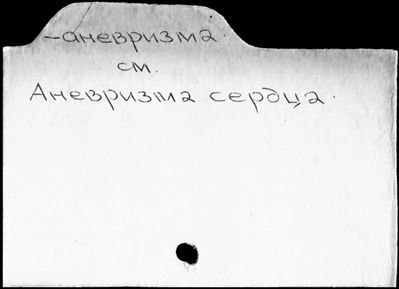 -аневризма
см.
Аневризма сердца.